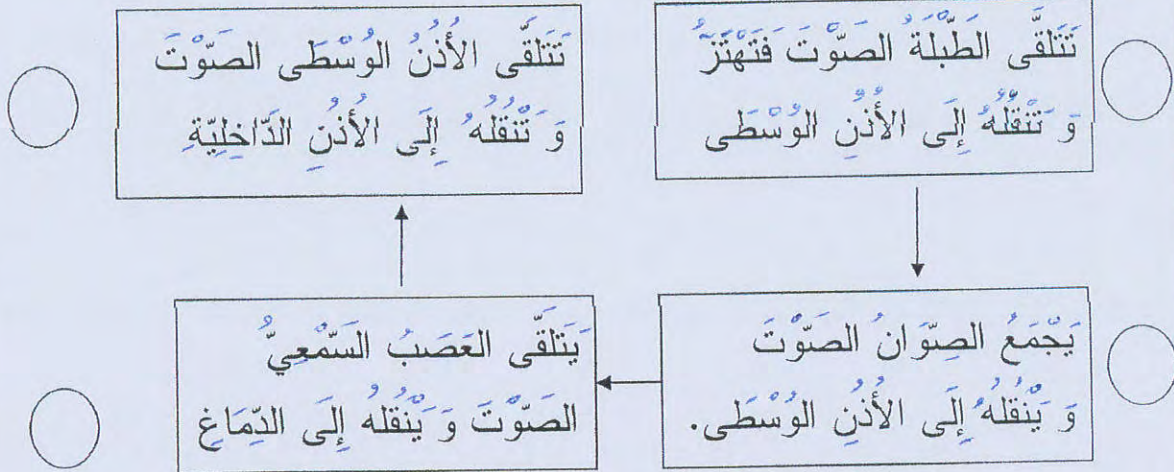 تَتَلَقَّى الطَبْلَةُ الصَوْتَ فَتَهْتَزُّ
وَ تَنْقُلُهُ إِلَى الأُذُنِ الوُسْطَى
تَتَلَقَّى الأُذُنُ الوُسْطَى الصَوْتَ
وَ تَنْقُلُهُ إِلَى الأُذُنِ الدَّاخِلِيَّةِ
يَجْمَعُ الصِّوَانُ الصَوْتَ
وَ يَنْقُلُهُ إِلَى الأُذُنِ الوُسْطَى.
يَتَلَقَّى العَصَبُ السَّمْعِيُّ
الصَوْتَ وَ يَنْقُلُهُ إِلَى الدِّمَاغِ